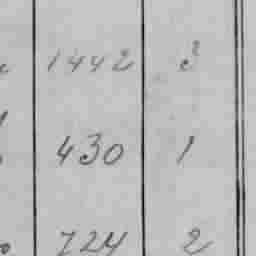 1442 3
430 1
724 2